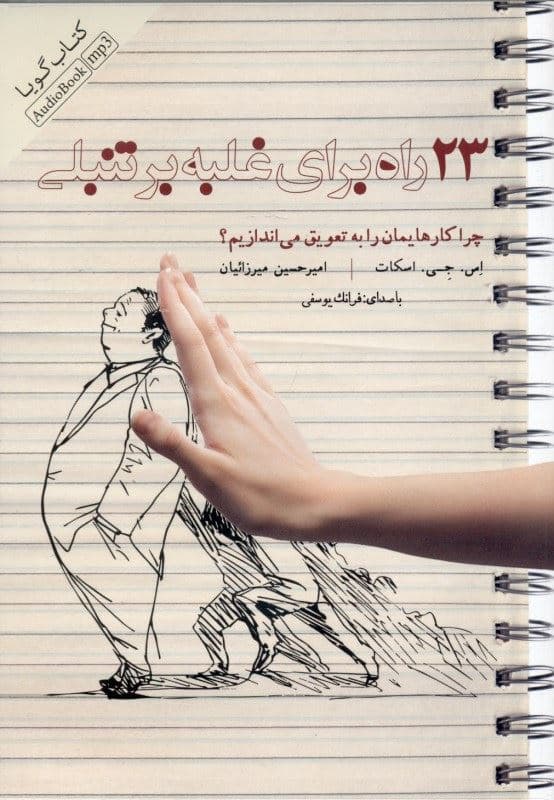 کتاب گویا
AudioBook mp3
۲۳ راه برای غلبه بر تنبلی
چرا کارهایمان را به تعویق می‌اندازیم؟
اِس. جِی. اسکات | امیرحسین میرزائیان
باصدای: فرانک یوسفی